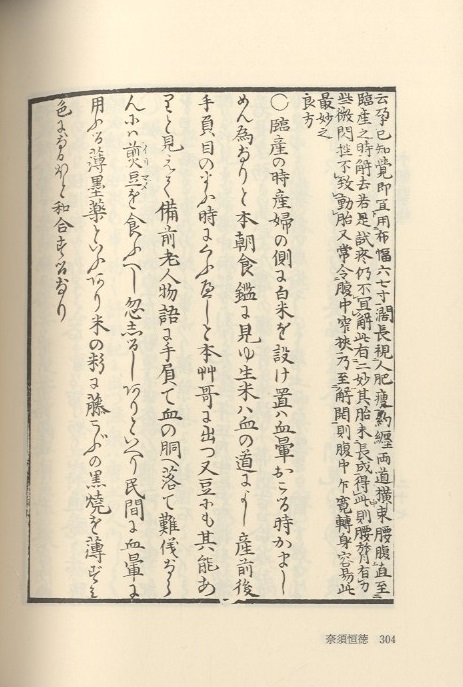 云孕已知覚即宜用布幅六七寸濶長視人肥瘦約纏両道横束腰腹直至
臨産之時解去若是試疼仍不宜解此有二妙其胎未長成得此則腰膂有力
些微閃挫不致動胎又常令腹中窄狹乃至解開則腹中乍寛轉身容易此
最妙之
良方
〇臨産の時産婦の側に白米を設け置ハ血暈おこる時かまし
めん為なりと本朝食鑑に見ゆ生米ハ血の道によし産前後
手負目のまふ時にくふへしと本艸哥に出つ又豆にも其能あ
りと見えて備前老人物語に手負て血の胴へ落て難儀なら
んにハ煎豆を食ふへし忽しるしありといへり民間に血暈に
用ふる薄墨薬といふあり米の粉に藤こぶの黒焼を薄ずみ
色になるほと和合するなり
奈須恒徳 304